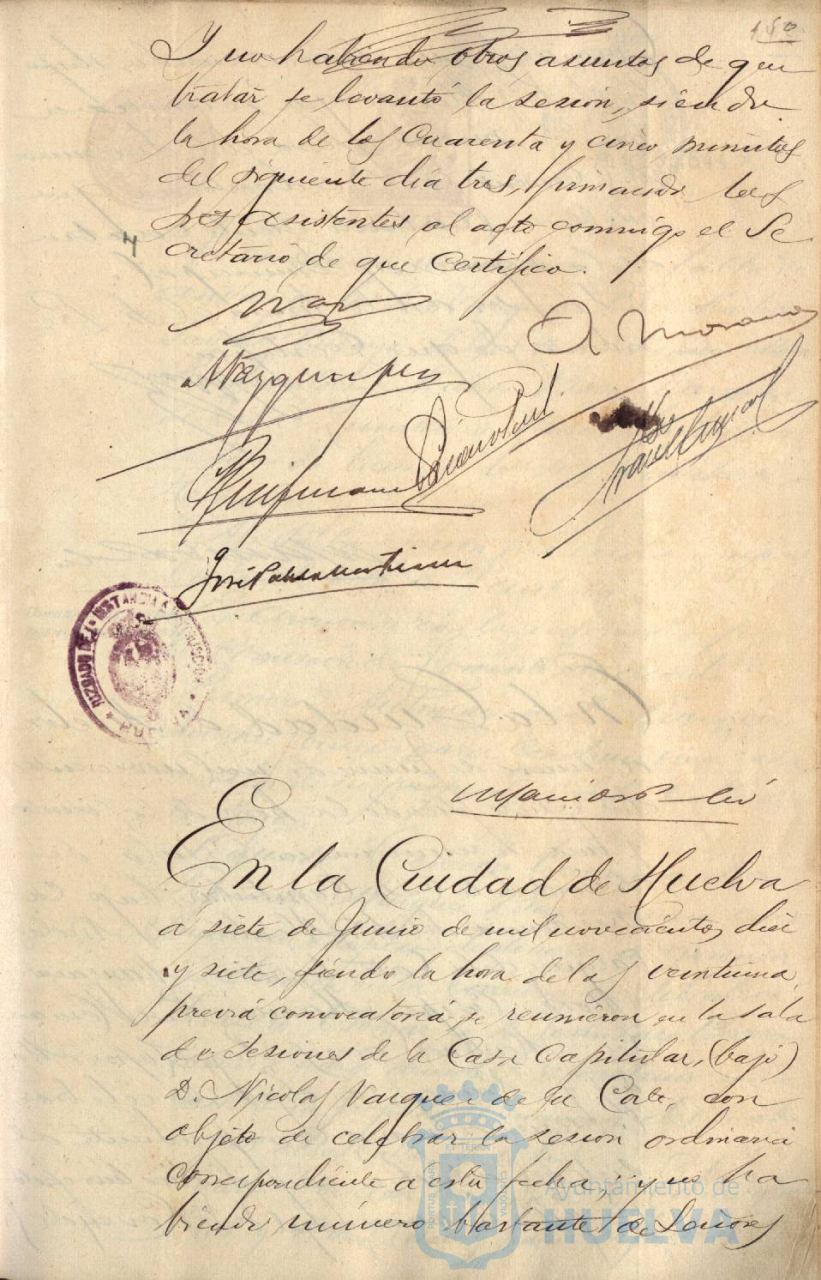 150
Y no habiendo otros asuntos de que
tratar se levantó la sesión, siendo
la hora de las cuarenta y cinco minutos
del siguiente día tres, firmando los
Sres asistentes al acto conmigo el Se
cretario de que Certifico.
A Moreno
En la Ciudad de Huelva
a siete de Junio de mil novecientos diez
y siete, siendo la hora de las veintiuna,
previa convocatoria, se reunieron en la Sala
de Sesiones de la Casa Capitular, (bajo)
D. Nicolas Vazquez de la Corte, con
objeto de celebrar la sesion ordinaria
correspondiente a esta fecha; y no ha
biendo número bastante de Señores
JUZGADO DE 1ª INSTANCIA E INSTRUCCIÓN
HUELVA
Ayuntamiento de
HUELVA